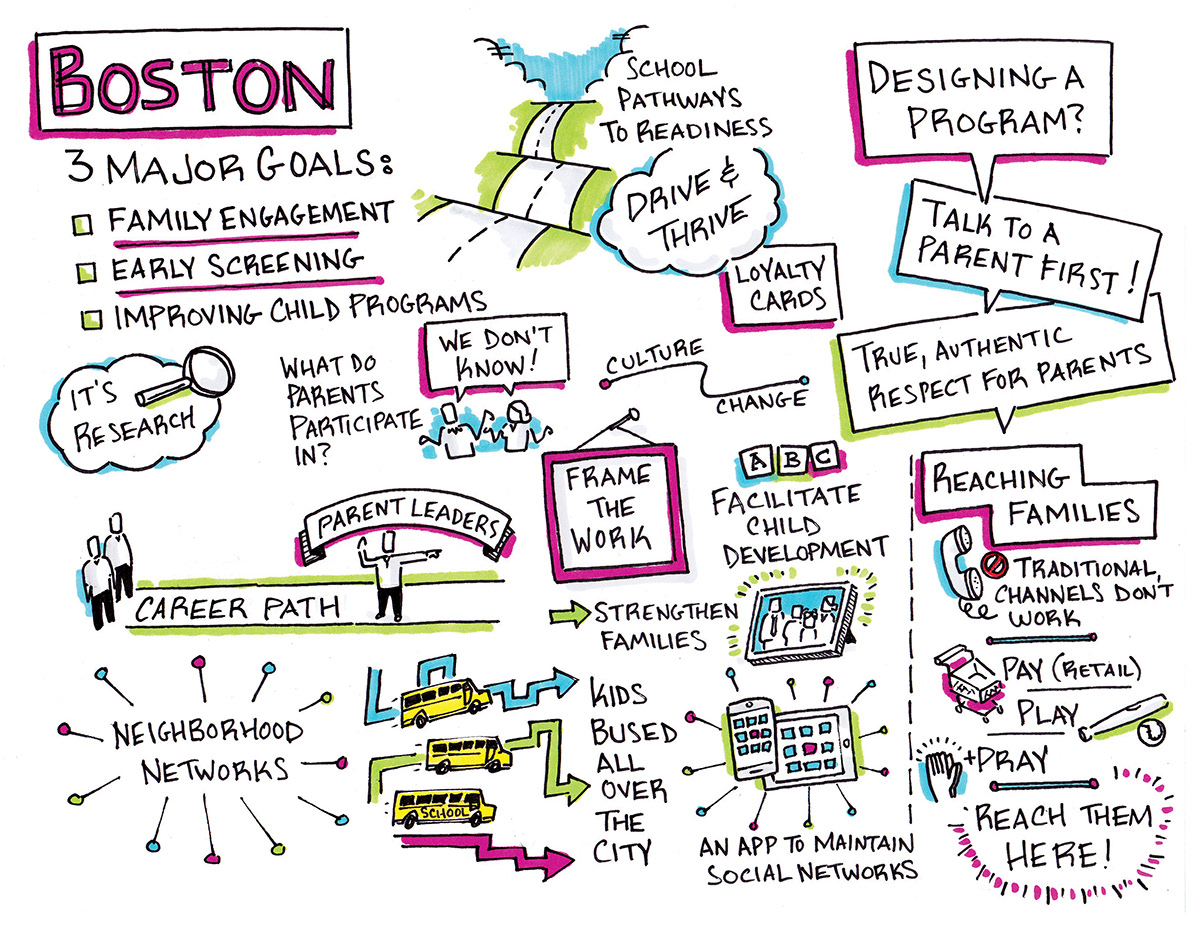 BOSTON
3 MAJOR GOALS:
FAMILY ENGAGEMENT
EARLY SCREENING
IMPROVING CHILD PROGRAMS
SCHOOL
PATHWAYS
TO READINESS
DRIVE &
THRIVE
LOYALTY
CARDS
DESIGNING A
PROGRAM?
TALK TO A
PARENT FIRST!
TRUE, AUTHENTIC
RESPECT FOR PARENTS
IT'S
RESEARCH
WHAT DO
PARENTS
PARTICIPATE
IN?
WE DON'T
KNOW!
CULTURE
CHANGE
FRAME
THE
WORK
A B C
FACILITATE
CHILD
DEVELOPMENT
PARENT LEADERS
CAREER PATH
STRENGTHEN
FAMILIES
NEIGHBORHOOD
NETWORKS
SCHOOL
KIDS
BUSED
ALL
OVER
THE
CITY
AN APP TO MAINTAIN
SOCIAL NETWORKS
REACHING
FAMILIES
TRADITIONAL
CHANNELS DON'T
WORK
PAY (RETAIL)
PLAY
+PRAY
REACH THEM
HERE!